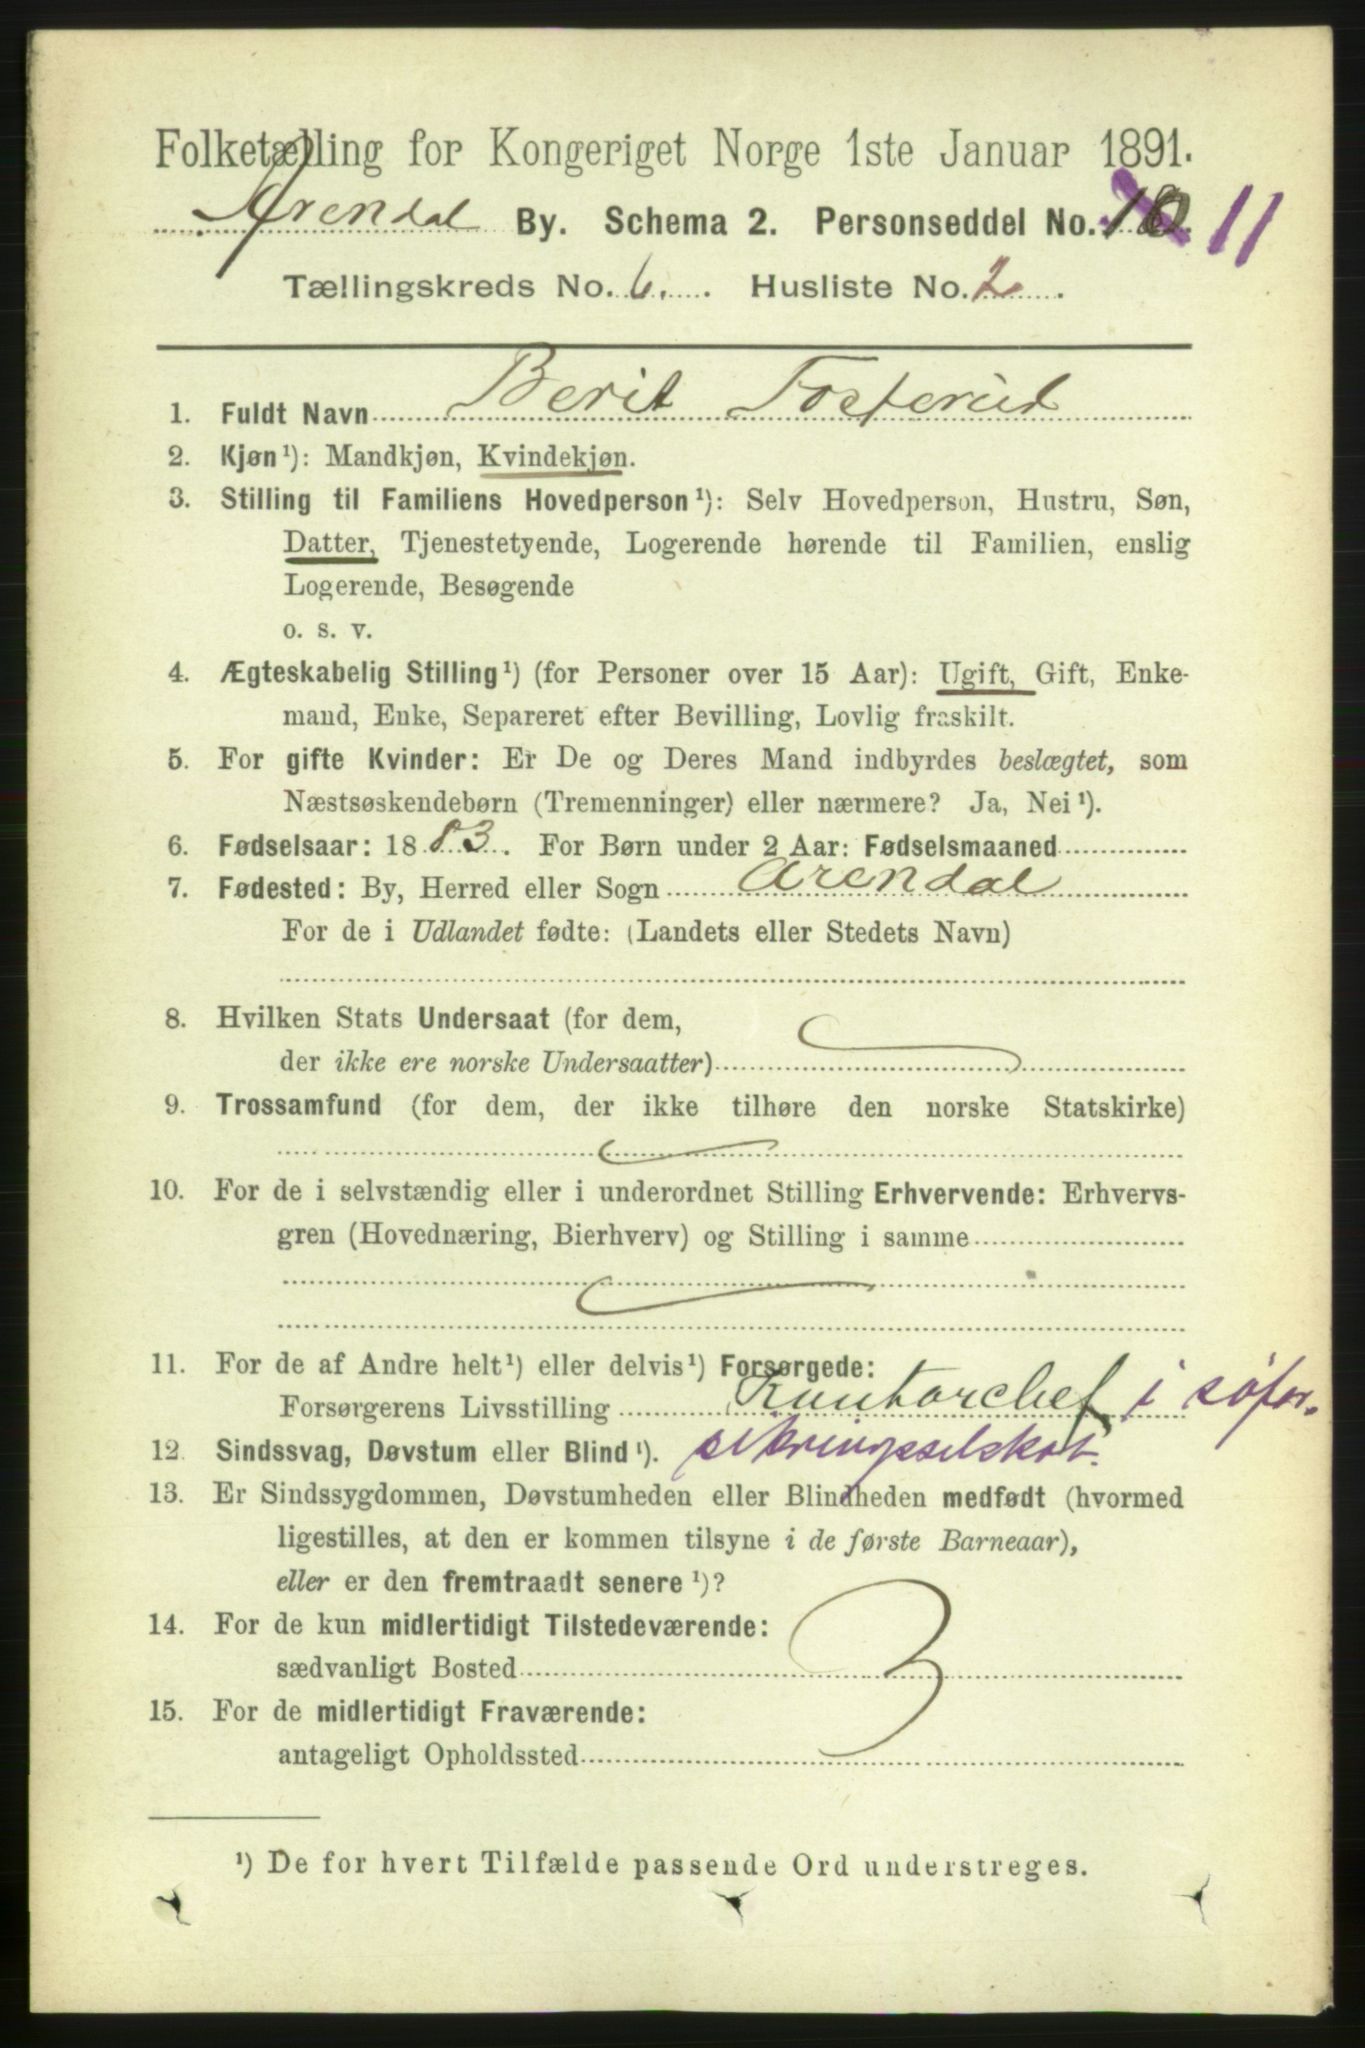 Folketælling for Kongeriget Norge 1ste Januar 1891.
Arendal By. Schema 2. Personseddel No. 10. 11
Tællingskreds No. 6. Husliste No. 2.
1. Fuldt Navn Berit Fosterud
2. Kjøn¹): Mandkjøn, Kvindekjøn.
3. Stilling til Familiens Hovedperson¹): Selv Hovedperson, Hustru, Søn,
Datter, Tjenestetyende, Logerende hørende til Familien, enslig
Logerende, Besøgende
o. s. v.
4. Ægteskabelig Stilling¹) (for Personer over 15 Aar): Ugift, Gift, Enke-
mand, Enke, Separeret efter Bevilling, Lovlig fraskilt.
5. For gifte Kvinder: Er De og Deres Mand indbyrdes beslægtet, som
Næstsøskendebørn (Tremenninger) eller nærmere? Ja, Nei¹).
6. Fødselsaar: 1883. For Børn under 2 Aar: Fødselsmaaned
7. Fødested: By, Herred eller Sogn Arendal
For de i Udlandet fødte: (Landets eller Stedets Navn)
8. Hvilken Stats Undersaat (for dem,
der ikke ere norske Undersaatter)
9. Trossamfund (for dem, der ikke tilhøre den norske Statskirke)
10. For de i selvstændig eller i underordnet Stilling Erhvervende: Erhvervs-
gren (Hovednæring, Bierhverv) og Stilling i samme
11. For de af Andre helt¹) eller delvis¹) Forsørgede:
Forsørgerens Livsstilling Kontorchef i søfor-
12. Sindssvag, Døvstum eller Blind¹). sikringsselskab.
13. Er Sindssygdommen, Døvstumheden eller Blindheden medfødt (hvormed
ligestilles, at den er kommen tilsyne i de første Barneaar),
eller er den fremtraadt senere¹)?
14. For de kun midlertidigt Tilstedeværende:
sædvanligt Bosted
15. For de midlertidigt Fraværende:
antageligt Opholdssted
¹) De for hvert Tilfælde passende Ord understreges.